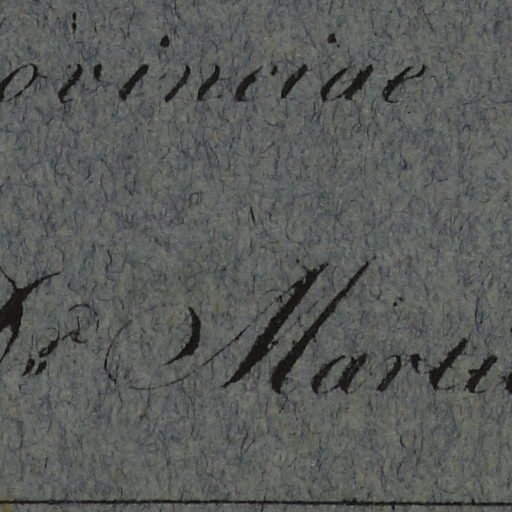 ovinciae
Sr. Marti